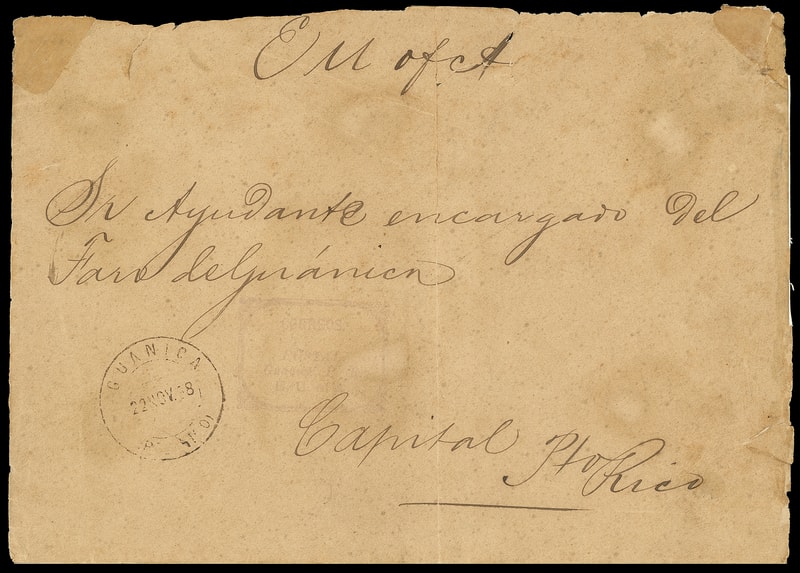 E U of A
Sr Ayudante encargado del
Faro de Guánica
GUANICA
22 NOV. 98
Capital Pto Rico